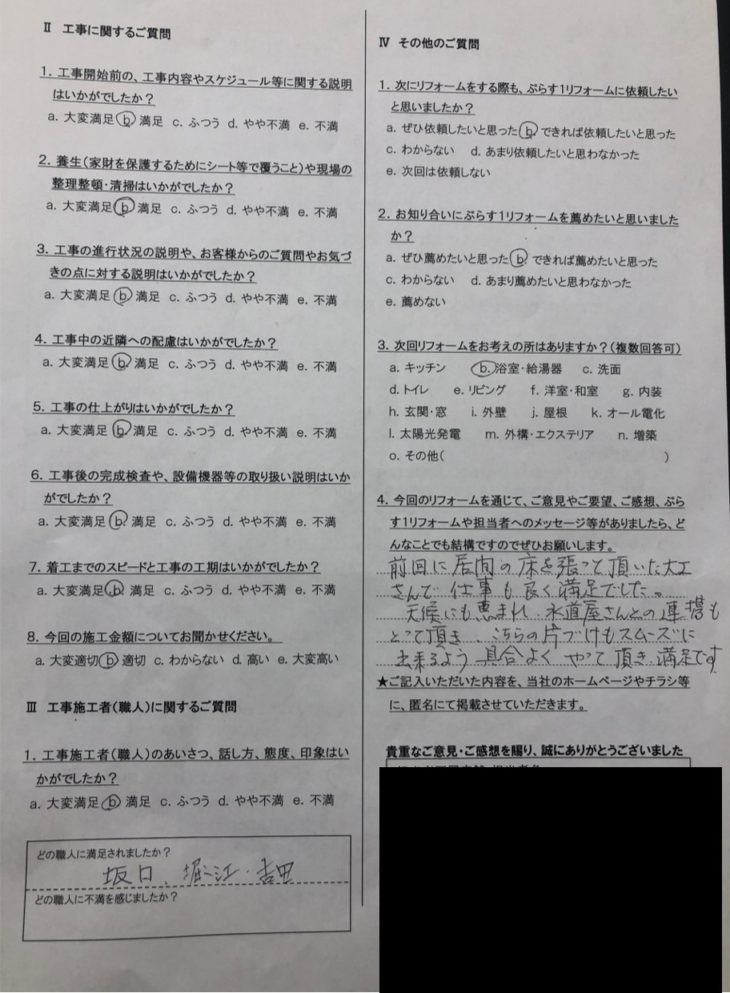 Ⅱ 工事に関するご質問
1. 工事開始前の、工事内容やスケジュール等に関する説明
はいかがでしたか？
a. 大変満足 b. 満足 c. ふつう d. やや不満 e. 不満
2. 養生(家財を保護するためにシート等で覆うこと)や現場の
整理整頓・清掃はいかがでしたか？
a. 大変満足 b. 満足 c. ふつう d. やや不満 e. 不満
3. 工事の進行状況の説明や、お客様からのご質問やお気づ
きの点に対する説明はいかがでしたか？
a. 大変満足 b. 満足 c. ふつう d. やや不満 e. 不満
4. 工事中の近隣への配慮はいかがでしたか？
a. 大変満足 b. 満足 c. ふつう d. やや不満 e. 不満
5. 工事の仕上がりはいかがでしたか？
a. 大変満足 b. 満足 c. ふつう d. やや不満 e. 不満
6. 工事後の完成検査や、設備機器等の取り扱い説明はいか
がでしたか？
a. 大変満足 b. 満足 c. ふつう d. やや不満 e. 不満
7. 着工までのスピードと工事の工期はいかがでしたか？
a. 大変満足 b. 満足 c. ふつう d. やや不満 e. 不満
8. 今回の施工金額についてお聞かせください。
a. 大変適切 b. 適切 c. わからない d. 高い e. 大変高い
Ⅲ 工事施工者(職人)に関するご質問
1. 工事施工者(職人)のあいさつ、話し方、態度、印象はい
かがでしたか？
a. 大変満足 b. 満足 c. ふつう d. やや不満 e. 不満
どの職人に満足されましたか？
坂口、堀江・吉田
どの職人に不満を感じましたか？
Ⅳ その他のご質問
1. 次にリフォームをする際も、ぷらす1リフォームに依頼したい
と思いましたか？
a. ぜひ依頼したいと思った b. できれば依頼したいと思った
c. わからない d. あまり依頼したいと思わなかった
e. 次回は依頼しない
2. お知り合いにぷらす1リフォームを薦めたいと思いました
か？
a. ぜひ薦めたいと思った b. できれば薦めたいと思った
c. わからない d. あまり薦めたいと思わなかった
e. 薦めない
3. 次回リフォームをお考えの所はありますか？(複数回答可)
a. キッチン b. 浴室・給湯器 c. 洗面
d. トイレ e. リビング f. 洋室・和室 g. 内装
h. 玄関・窓 i. 外壁 j. 屋根 k. オール電化
l. 太陽光発電 m. 外構・エクステリア n. 増築
o. その他( )
4. 今回のリフォームを通じて、ご意見やご要望、ご感想、ぷら
す1リフォームや担当者へのメッセージ等がありましたら、ど
んなことでも結構ですのでぜひお願いします。
前回に居間の床を張って頂いた大工
さんで仕事も良く満足でした。
天候にも恵まれ、水道屋さんとの連携も
とって頂き、こちらの片づけもスムーズに
出来るよう具合よくやって頂き満足です
★ご記入いただいた内容を、当社のホームページやチラシ等
に、匿名にて掲載させていただきます。
貴重なご意見・ご感想を賜り、誠にありがとうございました